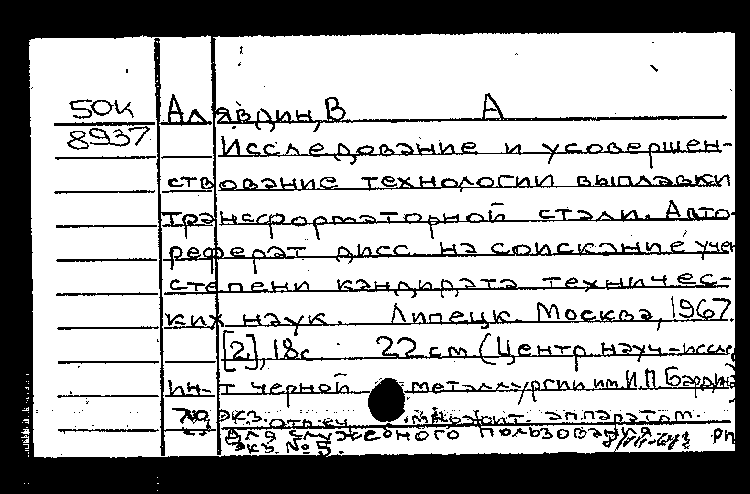 50К Алявдин, В А
8937 Исследование и усовершен-
ствование технологии выплавки
трансформаторной стали. Авто-
реферат дисс. на соискание учен
степени кандидата техничес-
ких наук. Липецк. Москва, 1967.
[2], 18с. 22 см (Центр. науч-иссле
ин-т черной металлургии им. И.П. Бардина)
экз. отп. множит. аппаратом.
Для служебного пользования
экз № 5.